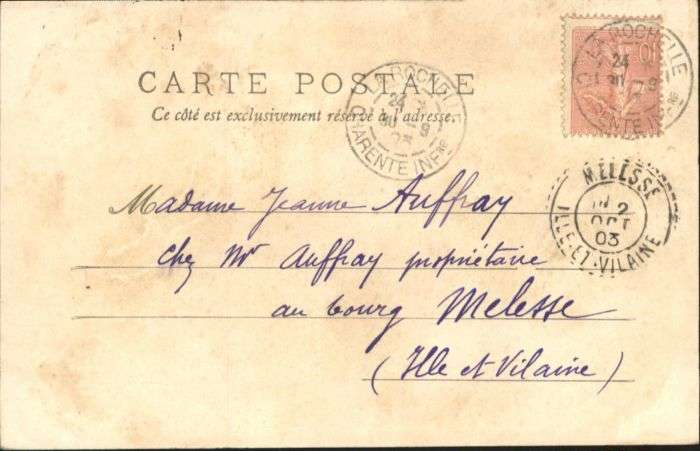 CARTE POSTALE
Ce côté est exclusivement réservé à l'adresse.
LA ROCHELLE
24
30 - 9
03
CHARENTE INFRE
LA ROCHELLE
24
CHARENTE INFRE
10
MELESSE
2
OCT
03
ILLE-ET-VILAINE
Madame Jeanne Auffray
chez Mr Auffray propriétaire
au bourg Melesse
(Ille et Vilaine)